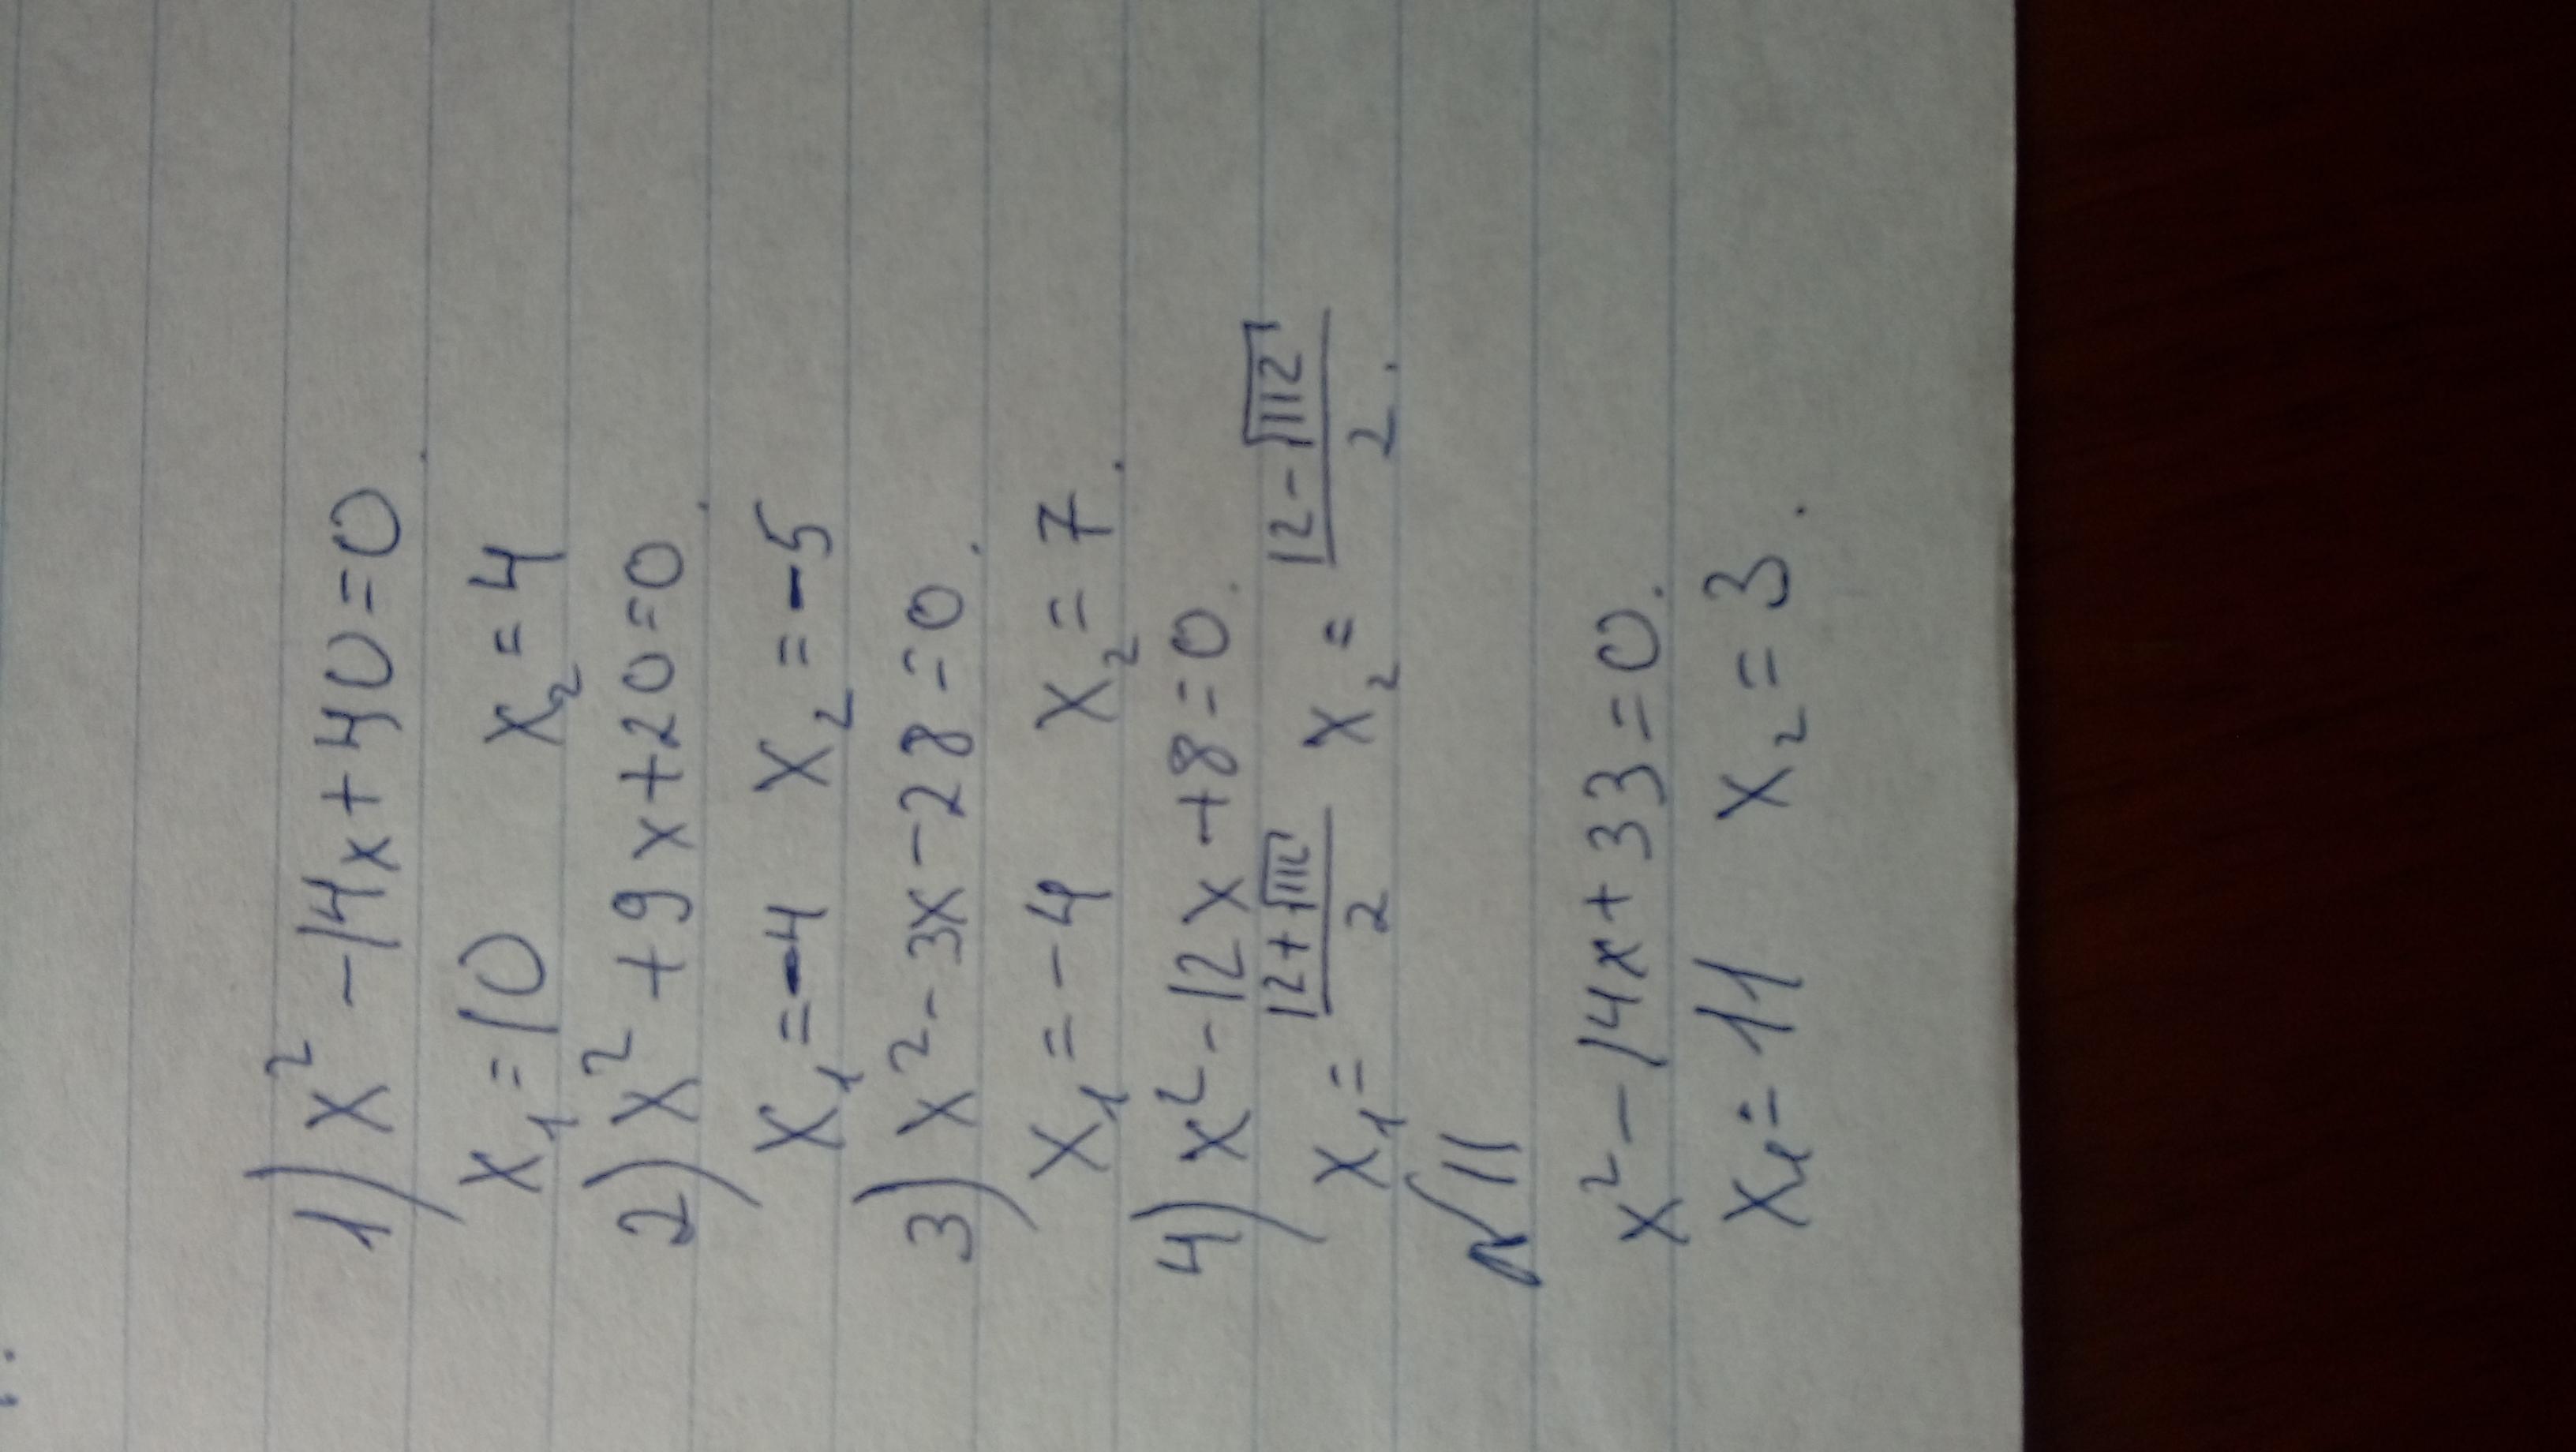 1) x² -14x+40=0.
x₁=10 x₂=4
2) x²+9x+20=0.
x₁=-4 x₂=-5
3) x²-3x-28=0.
x₁=-4 x₂=7.
4) x²-12x+8=0.
x₁= (12+√112)/2 x₂= (12-√112)/2.
√11
x²-14x+33=0.
x₁=11 x₂=3.